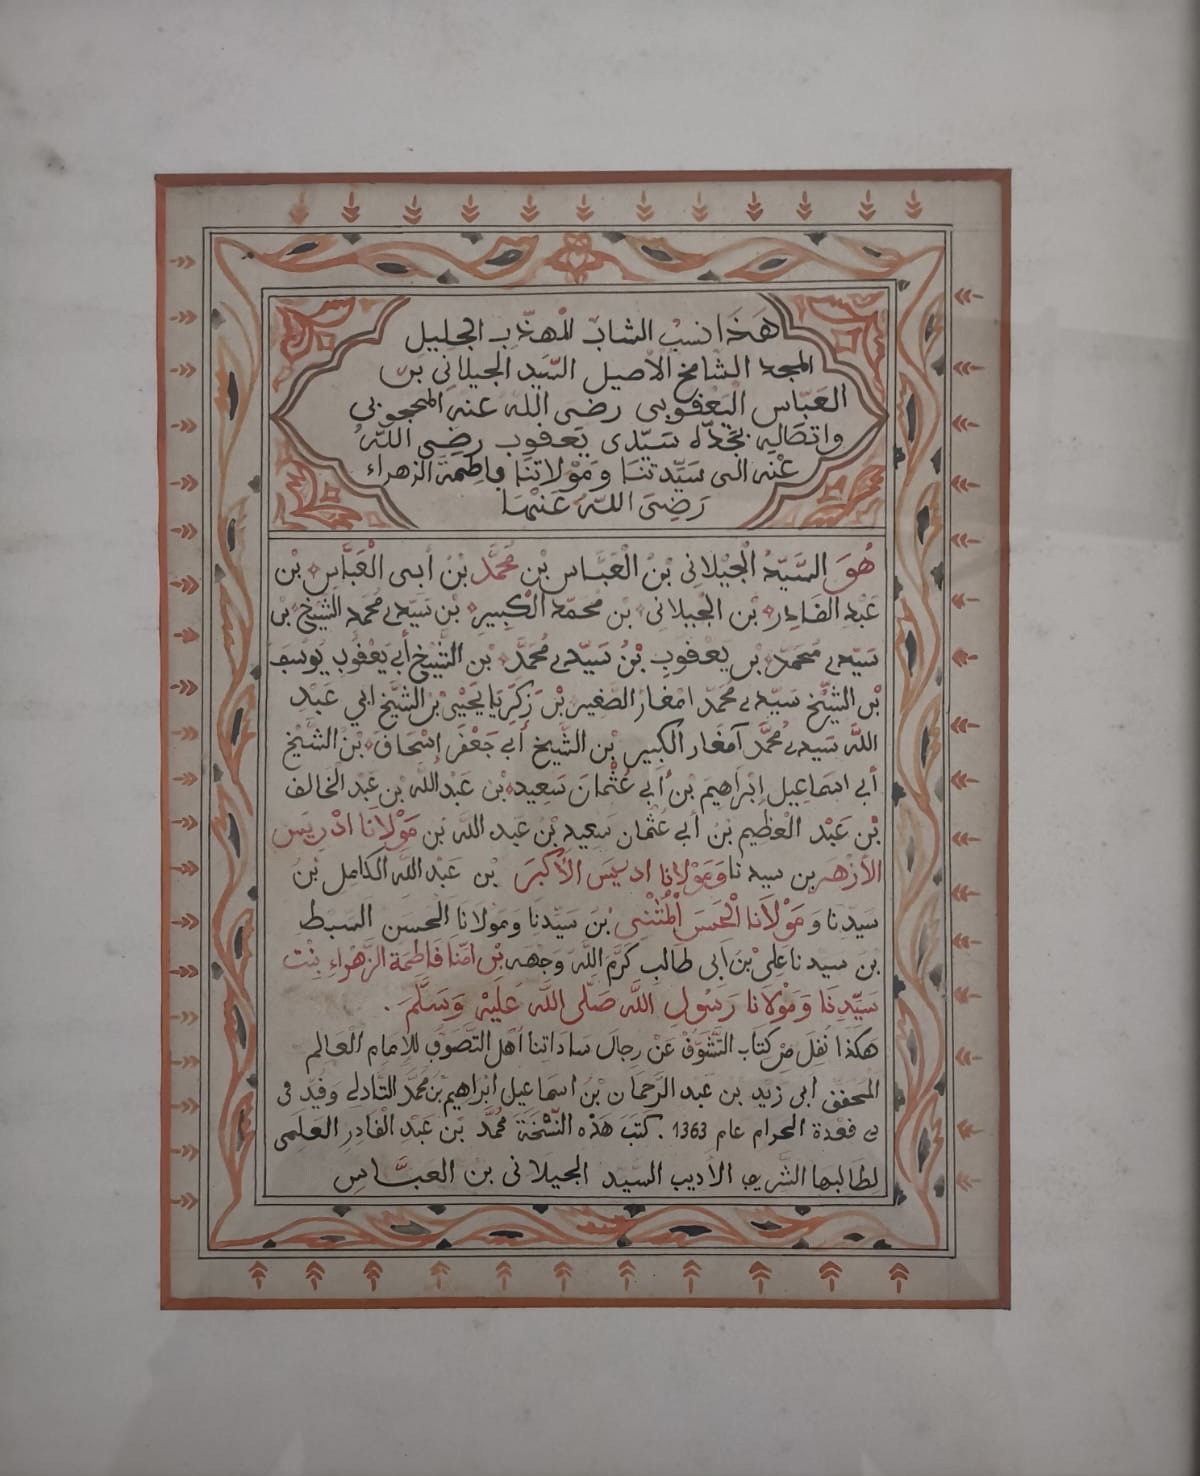 هَذَا نسب الشاب المهذب الجليل
المجد الشامخ الأصيل السّيد الجيلاني بن
العبّاس اليعقوبي رضى الله عنه المحجوبي
واتصاله بجدّه سَيّدى يَعقوب رضِي اللهُ
عنه الى سَيّدتنا ومَوْلاتنا فاطِمة الزهراء
رَضِيَ اللهُ عَنْهَا
هُوَ السَّيّدُ الْجيلاني بنُ الْعَبَّاس بْن مُحمَّد بْن أبى الْعَبَّاس بْن
عَبْد القَادِر بْن الجيلاني بن محمّد الكَبِير بْن سَيّدي مُحمد الشّيخ بن
سَيّدي محمّد بن يَعقوب بْنُ سَيّدي مُحمَّد بن الشَّيخ أبي يَعْقُوب يُوسف
بْن الشَّيْخ سَيّدي مُحمّد امغار الصَّغير بْن زَكَرِيا يَحْيَى بْن الشَّيخ ابي عَبْدِ
الله سَيدي مُحمَّد آمغَار الكبير بْن الشَّيخ أبي جَعْفَر إسْحَاق بْن الشيخ
أبي اسماعيل إبْرَاهيم بْن أبي عُثْمَان سَعِيد بْن عَبْد الله بن عَبد الخالق
بْن عَبْد الْعَظِيم بْن أبي عثْمان سعيد بْن عَبد الله بن مَوْلَانَا ادْريس
الأزْهر بن سيدنا وَمَوْلَانا ادريس الأكْبَر بْن عَبْد الله الكامل بْن
سيّدنا وَمَوْلَانا الْحَسَن الْمُثَنَّى بن سَيّدنَا ومولانا الحسن السبط
بن سيدنا عَلِي بْن أبي طالب كَرَّم اللهُ وجهه بْن امّنا فَاطِمة الزَّهْراء بنْت
سَيّدِنَا وَمَوْلَانا رَسُول الله صَلّى الله عَلَيْه وَسَلَّمَ .
هكَذَا نُقِلَ من كِتَاب التَّشَوُّف عَنْ رِجال سَادَاتِنا أهْل التَّصَوّف للإمَام العَالم
المحقق أبي زيد بن عبد الرّحمان بْن اسماعيل ابْراهيم بْن مُحمَّد التّادلي وقُيّد في
فى قعدة الحرام عام 1363 . كَتَبَ هَذه النّسْخَة مُحمَّد بْن عَبْد القَادر العلمى
لطَالبها الشّريف الأديب السّيد الجيلاني بن العبَّاس